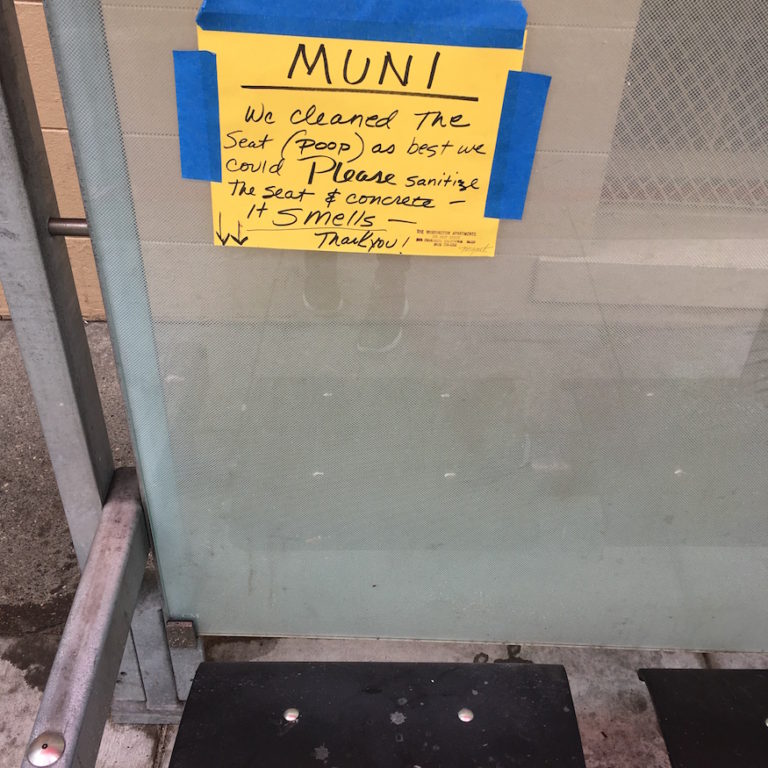 MUNI
We cleaned The
Seat (poop) as best we
could Please sanitize
The seat & concrete –
It Smells –
Thank you!